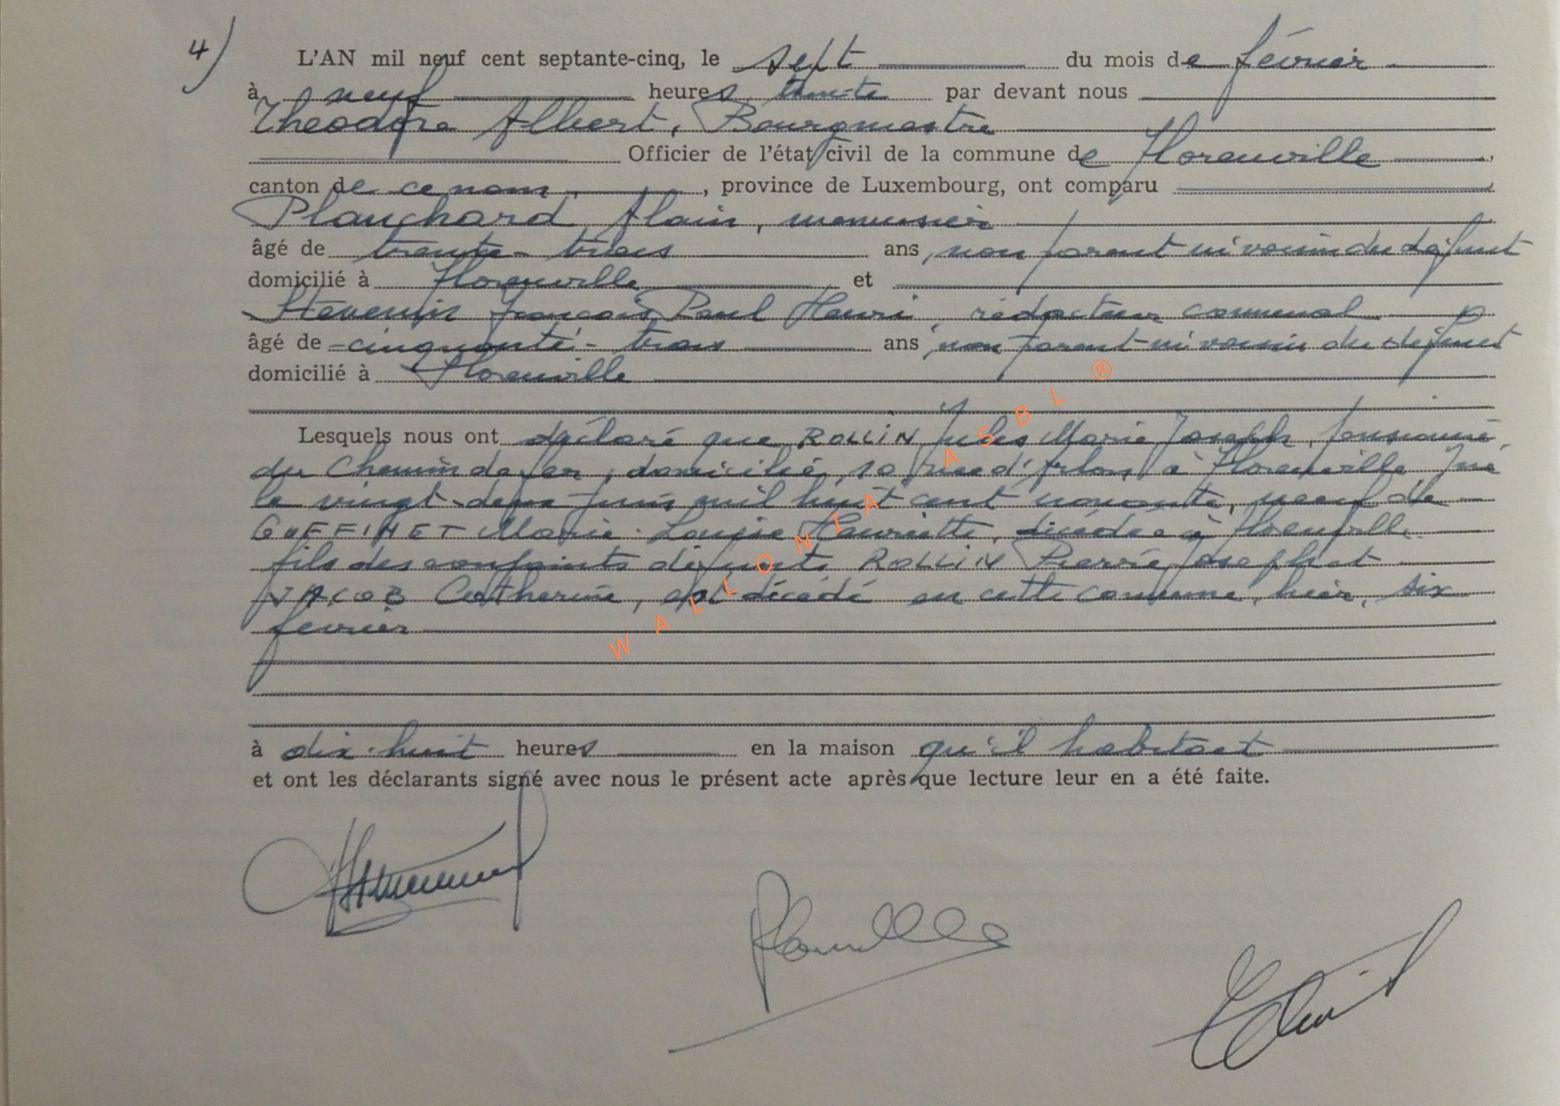 4)
L'AN mil neuf cent septante-cinq, le sept du mois de février
à neuf heures trente par devant nous
Théodore Albert, Bourgmestre
Officier de l'état civil de la commune de Florenville,
canton de ce nom, province de Luxembourg, ont comparu
Planchard Alain, menuisier
âgé de trente-trois ans, non parent ni voisin du défunt
domicilié à Florenville et
Stevenin François Paul Henri, rédacteur communal
âgé de cinquante-trois ans, non parent ni voisin du défunt
domicilié à Florenville
Lesquels nous ont déclaré que ROLLIN Jules Marie Joseph, pensionné
du Chemin de fer, domicilié, 10 rue d'Arlon, à Florenville, né
le vingt-deux juin mil huit cent nonante, veuf de
GOFFINET Marie-Louise Henriette, décédée à Florenville
fils des conjoints défunts ROLLIN Pierre Joseph et
JACOB Catherine, est décédé en cette commune, hier, six
février
à dix-huit heures en la maison qu'il habitait
et ont les déclarants signé avec nous le présent acte après que lecture leur en a été faite.
WALLONIA ASBL ®